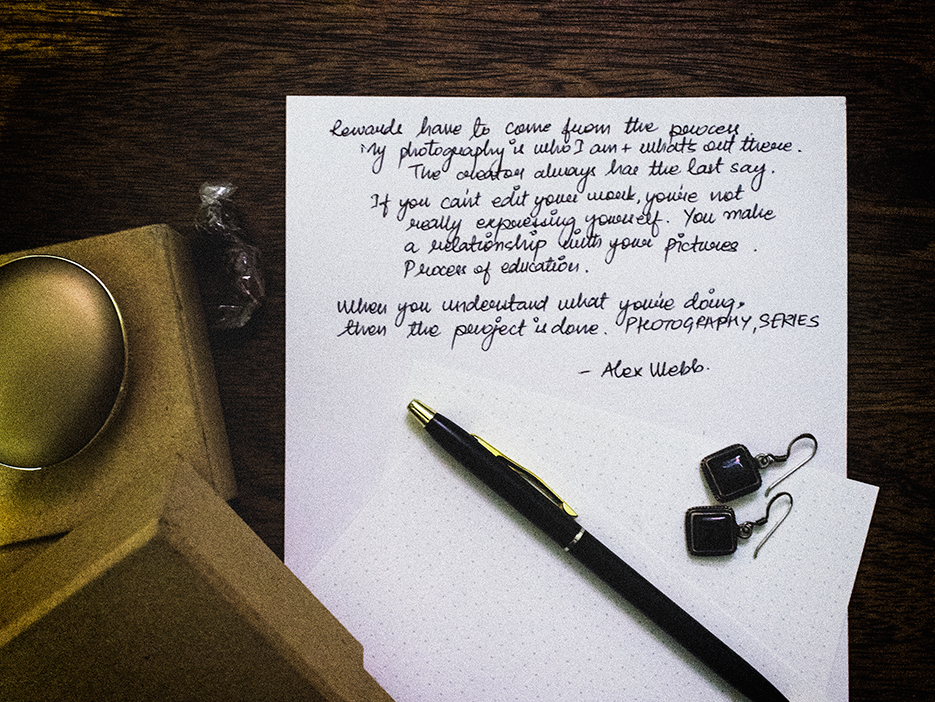 Rewards have to come from the process.
My photography is who I am + what's out there.
The creator always has the last say.
If you can't edit your work, you're not
really expressing yourself. You make
a relationship with your pictures.
Process of education.
When you understand what you're doing,
then the project is done. PHOTOGRAPHY, SERIES
- Alex Webb.